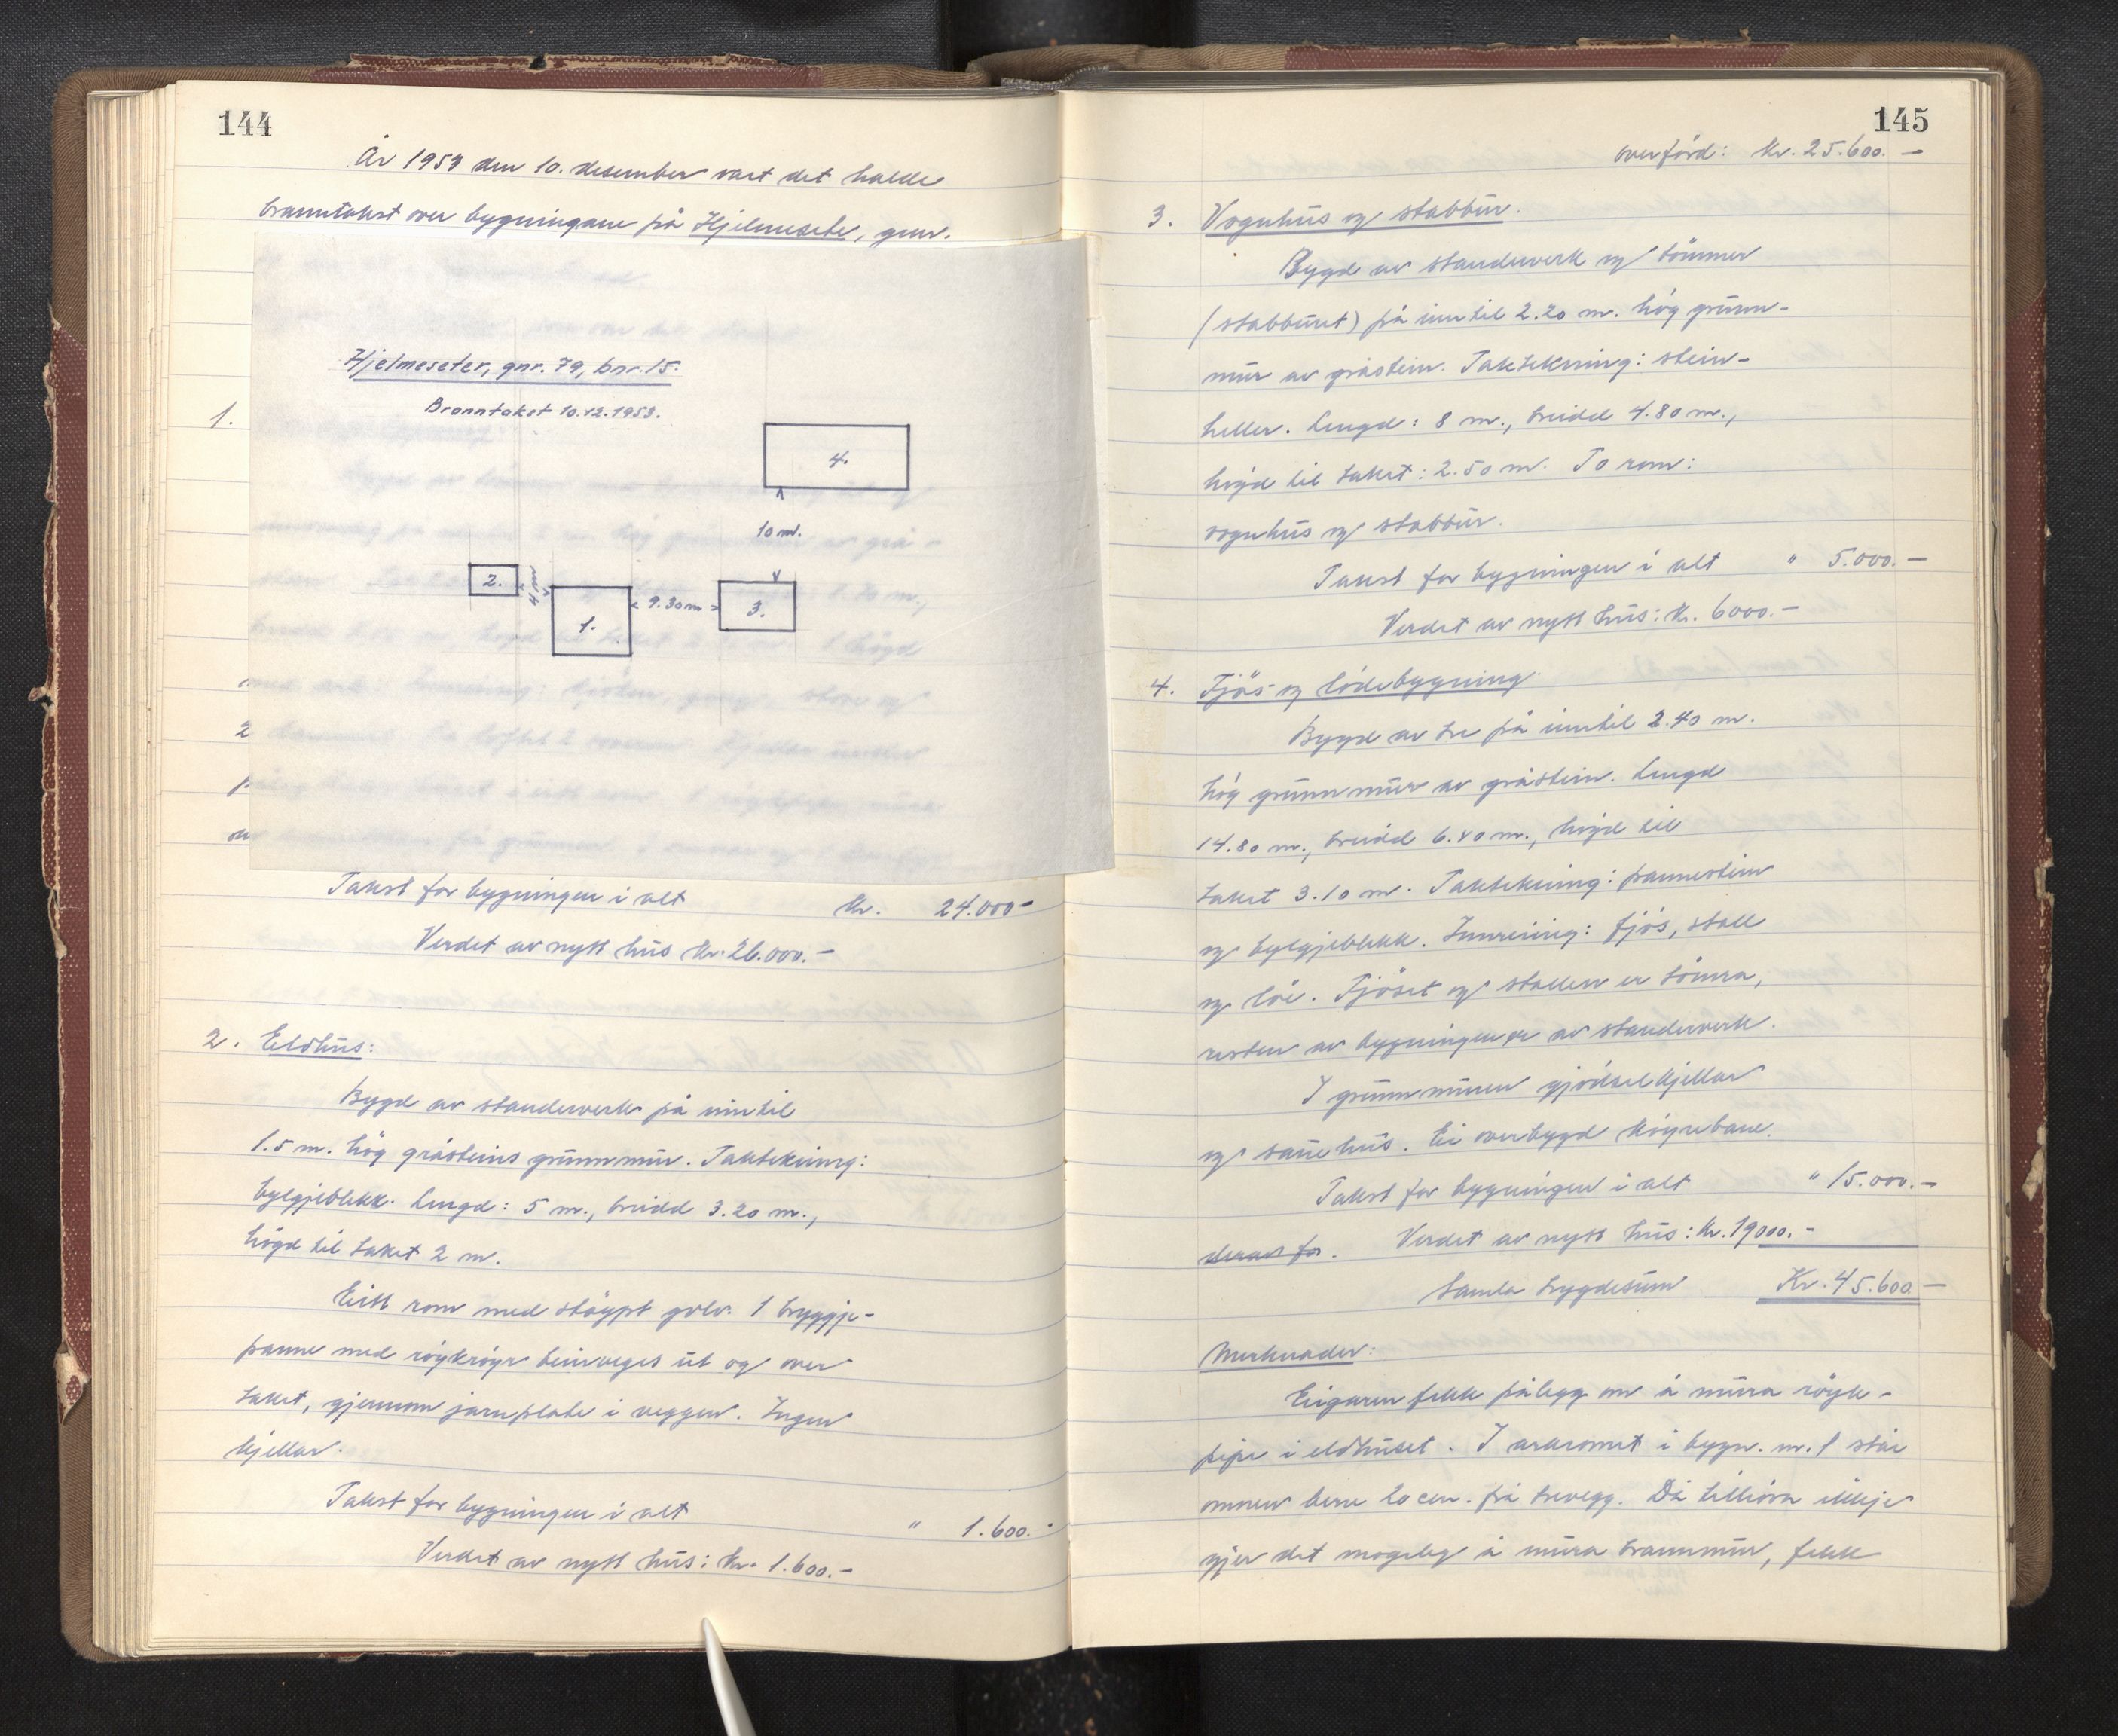 144
År 1953 den 10. desember vart det halde
branntakst over bygningane på Hjelmeseter, gnr.
Hjelmeseter, gnr. 79, bnr. 15.
Branntakst 10.12.1953.
4.
10 m.
2.
4 m
1.
9.30 m
3.
1.
2
Takst for bygningen i alt kr. 24.000-
Verdet av nytt hus kr. 26.000.-
2. Eldhus:
Bygd av standerverk på inntil
1.5 m. høg gråsteins grunnmur. Taktekning:
bylgjeblekk. Lengd: 5 m., breidd 3.20 m.,
høgd til taket 2 m.
Eitt rom med støypt golv. 1 bryggje-
panne med røykrøyr beinveges ut og over
taket, gjennom jarnplate i veggen. Ingen
kjellar.
Takst for bygningen i alt " 1.600.-
Verdet av nytt hus: kr. 1.600.-
145
overførd: kr. 25.600.-
3. Vognhus og stabbur.
Bygd av standerverk og tømmer
(stabburet) på inntil 2.20 m. høg grunn-
mur av gråstein. Taktekning: stein-
heller. Lengd: 8 m., breidd 4.80 m.,
høgd til taket: 2.50 m. To rom:
vognhus og stabbur.
Takst for bygningen i alt " 5.000.-
Verdet av nytt hus: kr. 6000.-
4. Fjøs- og lødebygning
Bygd av tre på inntil 2.40 m.
høg grunnmur av gråstein. Lengd
14.80 m., breidd 6.40 m., høgd til
taket 3.10 m. Taktekning: pannestein
og bylgjeblekk. Innreiing: fjøs, stall
og løe. Fjøset og stallen er tømra,
resten av bygningen er av standerverk.
I grunnmuren gjødselkjellar
og sauehus. Ei overbygd køyrebane.
Takst for bygningen i alt " 15.000.-
derav for. Verdet av nytt hus: kr. 19000.-
Samla trygdesum Kr. 45.600-
Merknader:
Eigaren fekk pålegg om å mura røyk-
pipe i eldhuset. I arkromet i bygn. nr. 1 står
omnen berre 20 cm. frå trevegg. Då tilhøva ikkje
gjer det mogeleg å mura brannmur, fekk